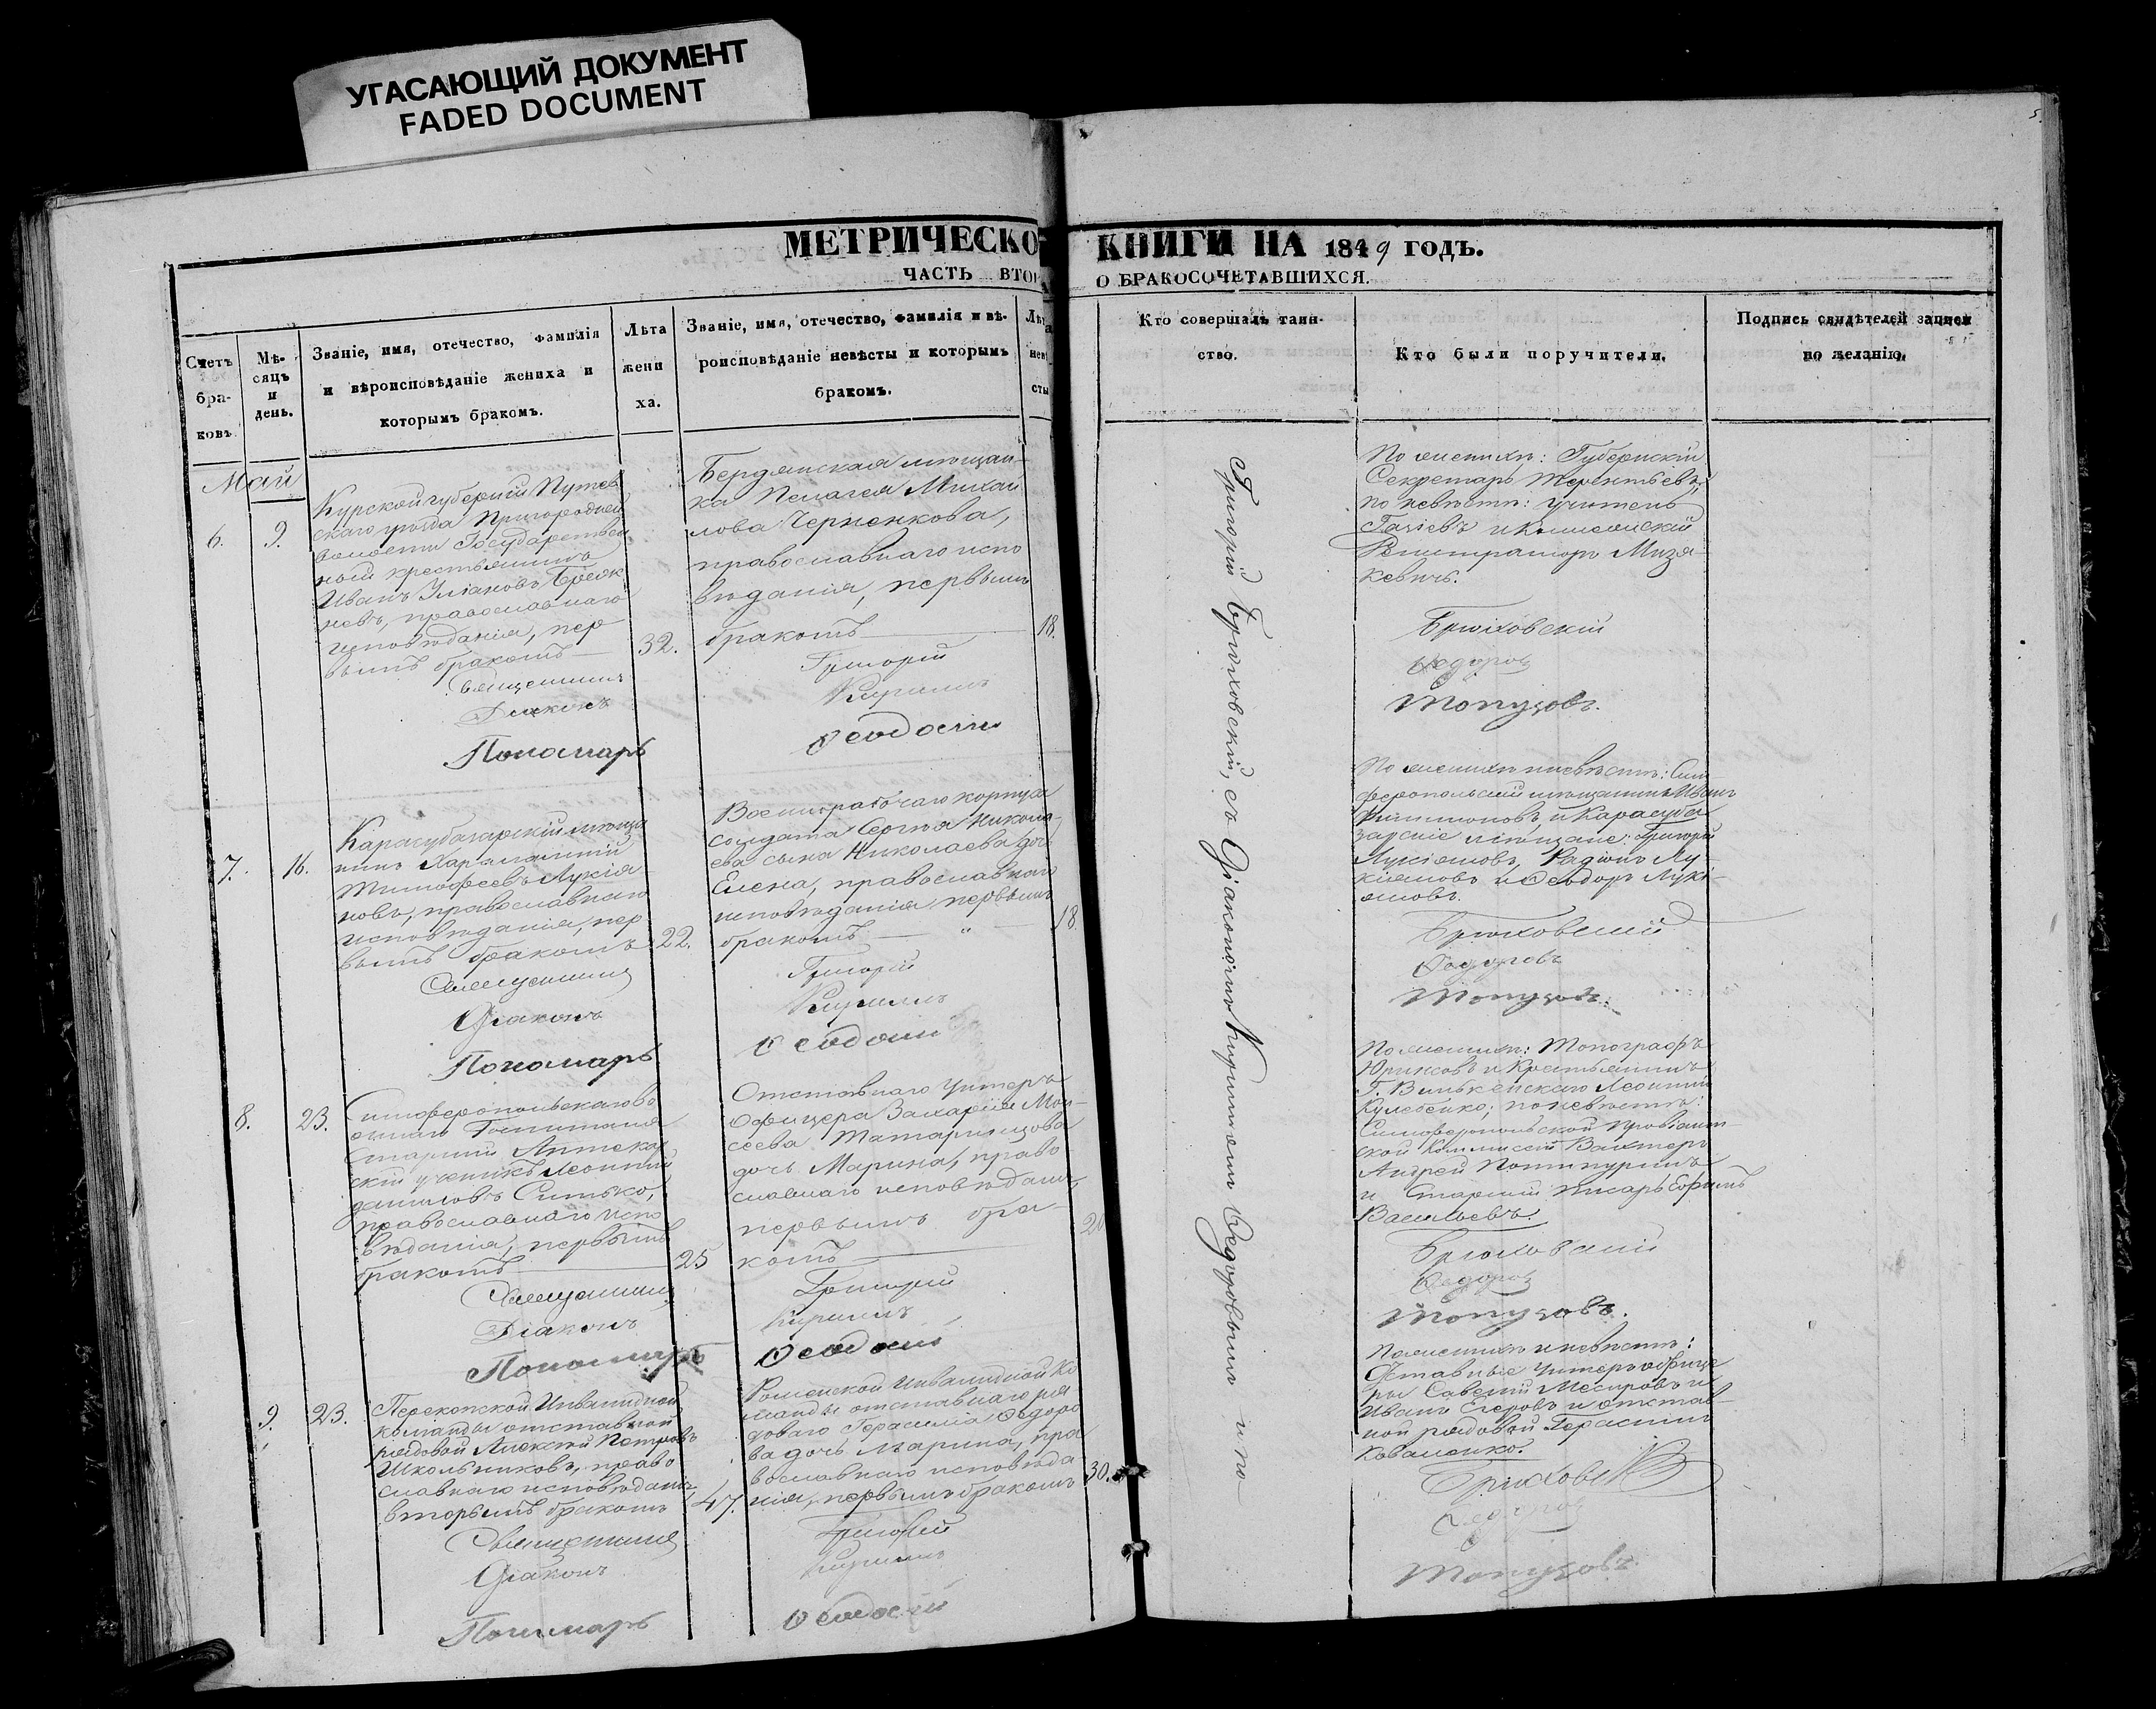 УГАСАЮЩИЙ ДОКУМЕНТ
FADED DOCUMENT
МЕТРИЧЕСКО
КНИГИ НА 1849 ГОДЪ.
ЧАСТЬ ВТОР
О БРАКОСОЧЕТАВШИХСЯ.
Счетъ
бра-
ковъ
Мѣ-
сяцъ
и
день.
Званіе, имя, отечество, фамилія
и вѣроисповѣданіе жениха и
которымъ бракомъ.
Лѣта
жени
ха.
Званіе, имя, отечество, фамилія и вѣ-
роисповѣданіе невѣсты и которымъ
бракомъ.
Лѣта
невѣ
сты
Кто совершалъ таин-
ство.
Кто были поручители.
Подпись свидѣтелей записи
по желанію.
Май
6.
9.
Курской губерніи Путив
скаго уѣзда Пригородней
волости Государствен
ный крестьянинъ
Иванъ Уліановъ
невъ, православнаго
исповѣданія, пер
вымъ бракомъ
32.
Священникъ
Діаконъ
Пономарь
Бердянская мѣщан-
ка Пелагея Михаи
лова Черненкова,
православнаго испо
вѣданія, первымъ
бракомъ
18.
Григорій
Кириллъ
Ѳеодосій
Григорій Брюховскій, съ Діакономъ Кирилломъ Ѳедоровымъ и по
По женихѣ: Губернскій
Секретарь Терентьевъ;
по невѣстѣ: учитель
Гачіевъ и Коллежскій
Регистраторъ Мизя-
кевичъ.
Брюховскій
Ѳедоровъ
Топузовъ.
7.
16.
Карасубазарскій мѣща
нинъ Харлампій
Тимофеевъ Лукія
новъ, православнаго
исповѣданія, пер
вымъ бракомъ
22.
Священникъ
Діаконъ
Пономарь
Военнорабочаго корпуса
солдата Сергѣя Никола-
ева сына Николаева дочь
Елена, православнаго
исповѣданія первымъ
бракомъ — " —
18
Григорій
Кириллъ
Ѳеодосій
По женихѣ и невѣстѣ: Сим-
ферополький мѣщанинъ Иванъ
Филимоновъ и Карасуба
зарские мѣщане: Григорій
Лукіяновъ, Радіонъ Лу-
кіяновъ и Ѳеодоръ Лукі-
яновъ.
Брюховский
Ѳедоровъ
Топузовъ.
8.
23.
Симферопольскаго во
еннаго Госпиталя
Старшій Аптекар
скій ученикъ Леонтій
Даниловъ Ситько,
православнаго испо
вѣданія, первымъ
бракомъ
25
Священникъ
Діаконъ
Пономарь
Отставнаго Унтеръ
Офицера Захарія Мои-
сеева Татаринцова
дочь Марина, право
славнаго исповѣданія,
первымъ бра-
комъ
20
Григорій
Кириллъ
Ѳеодосій
По женихѣ: Топографъ
Юриновъ и Крестьянинъ
Г. Вилькенскаго Леонтій
Кулебенко; по невѣстѣ:
Симферопольской Провіант-
ской Коммисіи Вахтеръ
Андрей Потипуринъ
и Старшій писарь Ефимъ
Васильевъ.
Брюховскій
Ѳедоровъ
Топузовъ.
9.
23.
Перекопской Инвалидной
команды отставной
рядовой Алексѣй Петровъ
Школьниковъ, право
славнаго исповѣданія,
вторымъ бракомъ
47.
Священникъ
Діаконъ
Пономарь
Роменской Инвалидной Ко
манды отставнаго ря
доваго Герасима Ѳедоро
ва дочь Марина, пра
вославнаго исповѣда
нія, первымъ бракомъ
30.
Григорій
Кириллъ
Ѳеодосій
По женихѣ и невѣстѣ:
Отставные Унтеръ офице
ры Савелій и
Иванъ Егоровъ и отстав-
ной рядовой Герасимъ
Коваленко.
Брюховскій
Ѳедоровъ
Топузовъ.